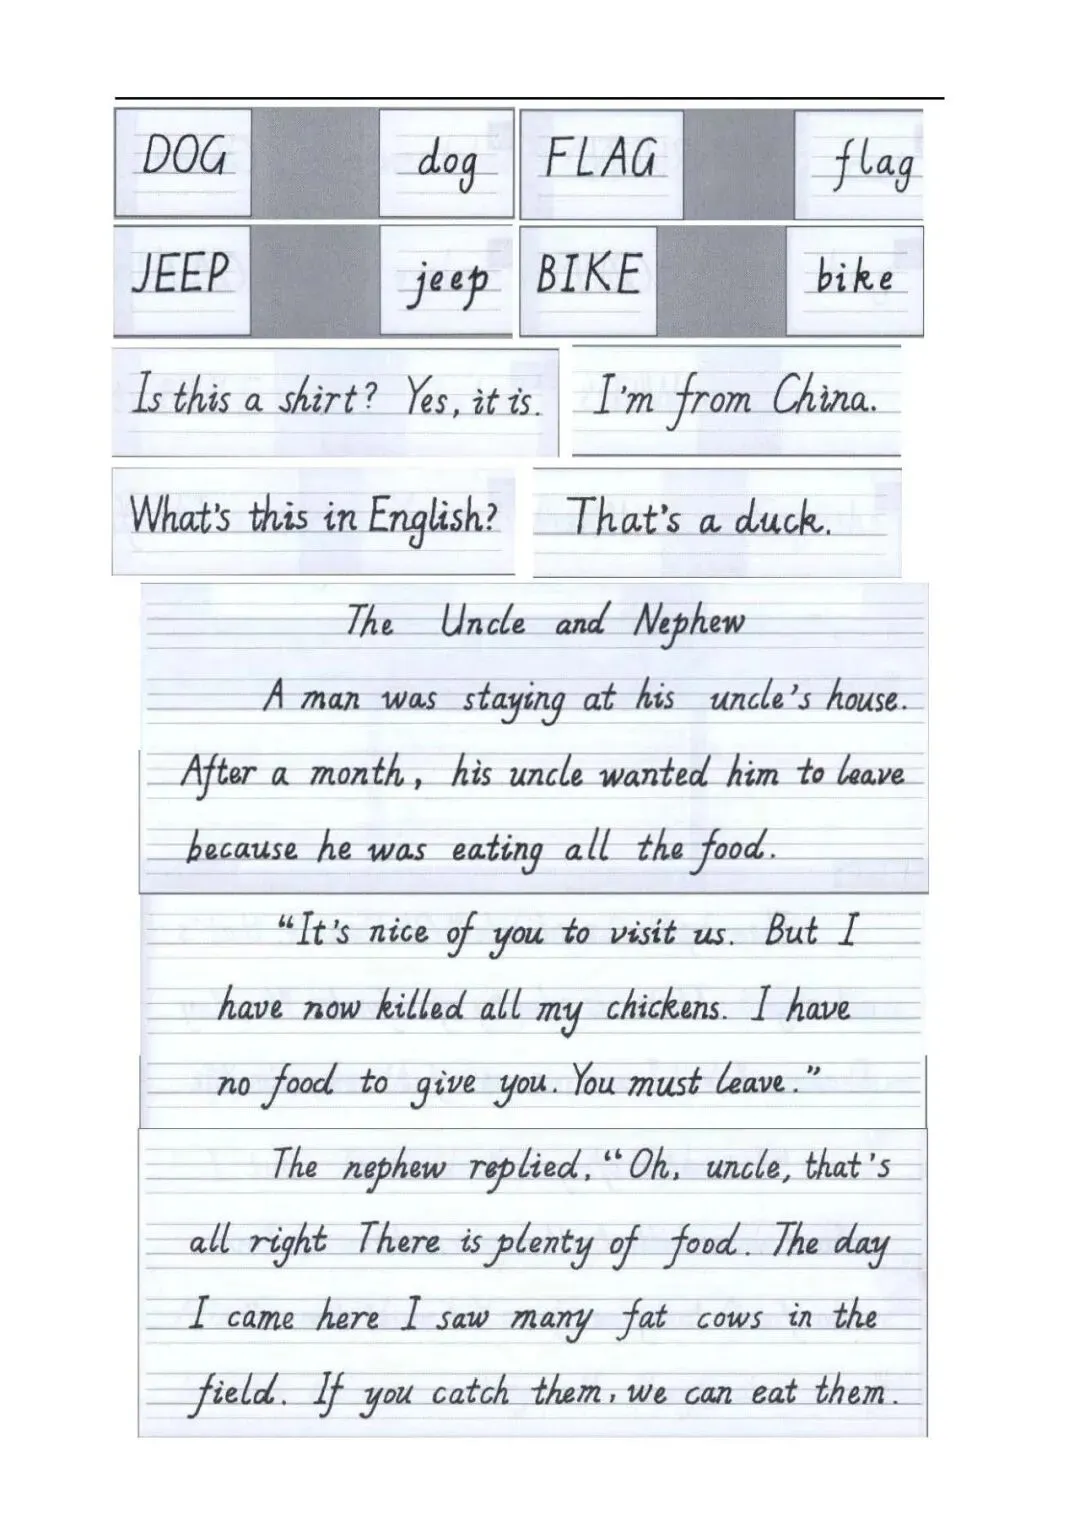 DOG dog FLAG flag
JEEP jeep BIKE bike
Is this a shirt? Yes, it is. I'm from China.
What's this in English? That's a duck.
The Uncle and Nephew
A man was staying at his uncle's house.
After a month, his uncle wanted him to leave
because he was eating all the food.
"It's nice of you to visit us. But I
have now killed all my chickens. I have
no food to give you. You must leave."
The nephew replied, "Oh, uncle, that's
all right There is plenty of food. The day
I came here I saw many fat cows in the
field. If you catch them, we can eat them.